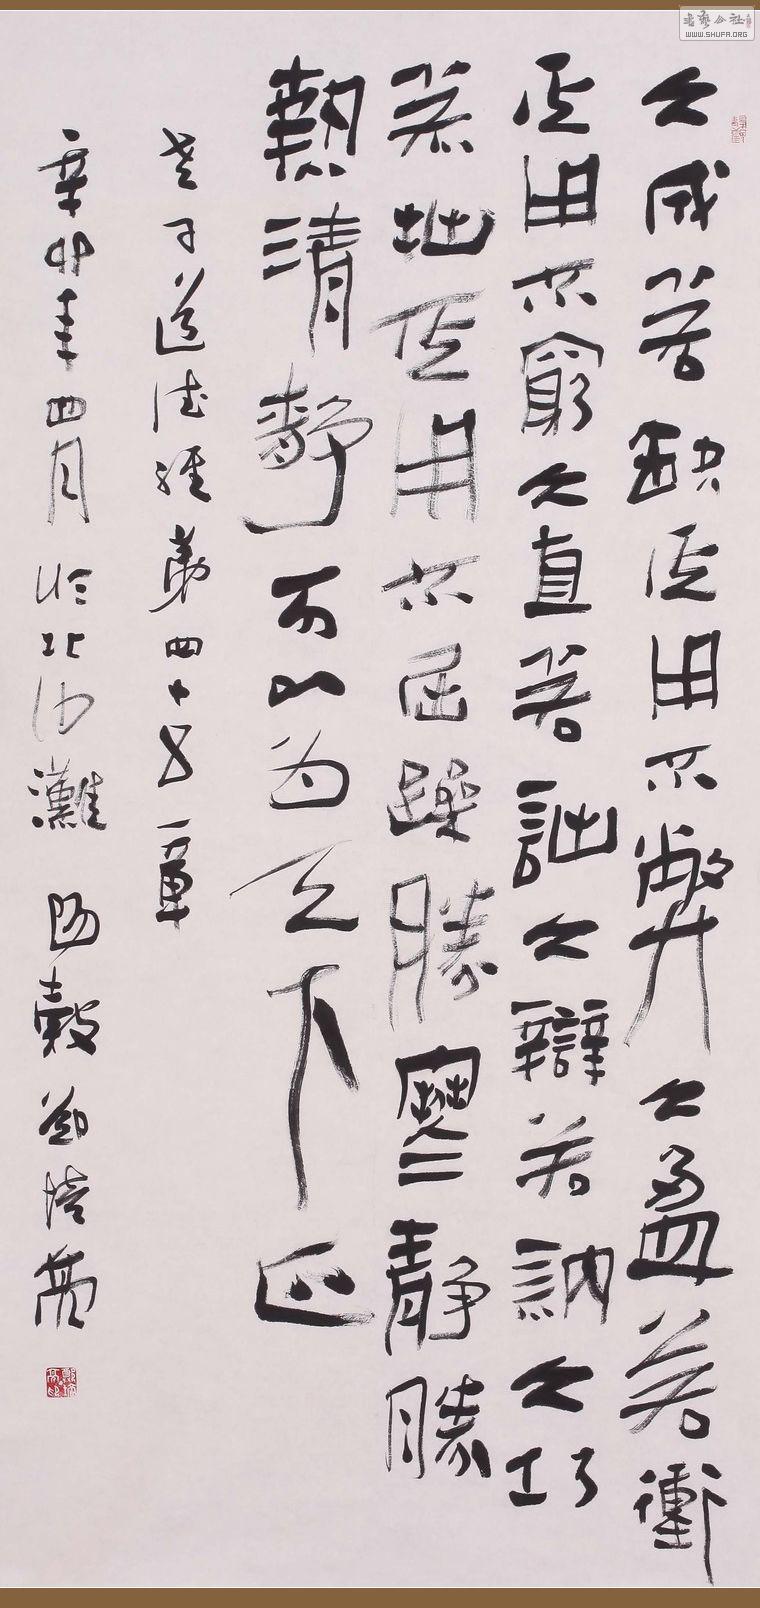 大成若缺其用不弊大盈若衝
其用不窮大直若詘大辯若訥大巧
若拙其用不屈躁勝寒靜勝
熱清靜可以為天下正
老子道德經第四十五章
辛卯年四月於北沙灘 陽穀鄭培亮
书艺公社
WWW.SHUFA.ORG